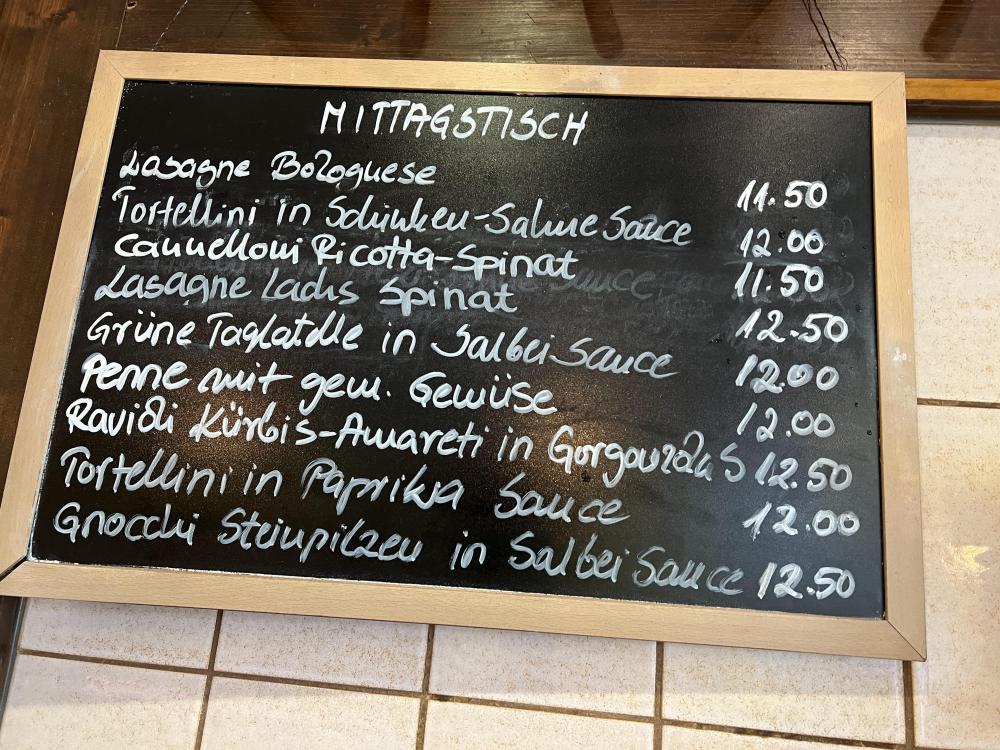 MITTAGSTISCH
Lasagne Bolognese 11.50
Tortellini in Schinken-Sahne Sauce 12.00
Cannelloni Ricotta-Spinat 11.50
Lasagne Lachs Spinat 12.50
Grüne Taglatelle in Salbei Sauce 12.00
Penne mit gem. Gewüse 12.00
Ravioli Kürbis-Amareti in Gorgonzola S 12.50
Tortellini in Paprika Sauce 12.00
Gnocchi Steinpilzen in Salbei Sauce 12.50